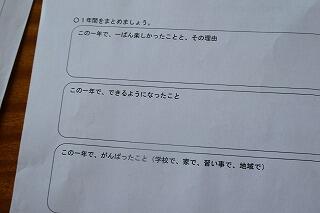 ○１年間をまとめましょう。
この一年で、一ばん楽しかったことと、その理由
この一年で、できるようになったこと
この一年で、がんばったこと（学校で、家で、習い事で、地域で）